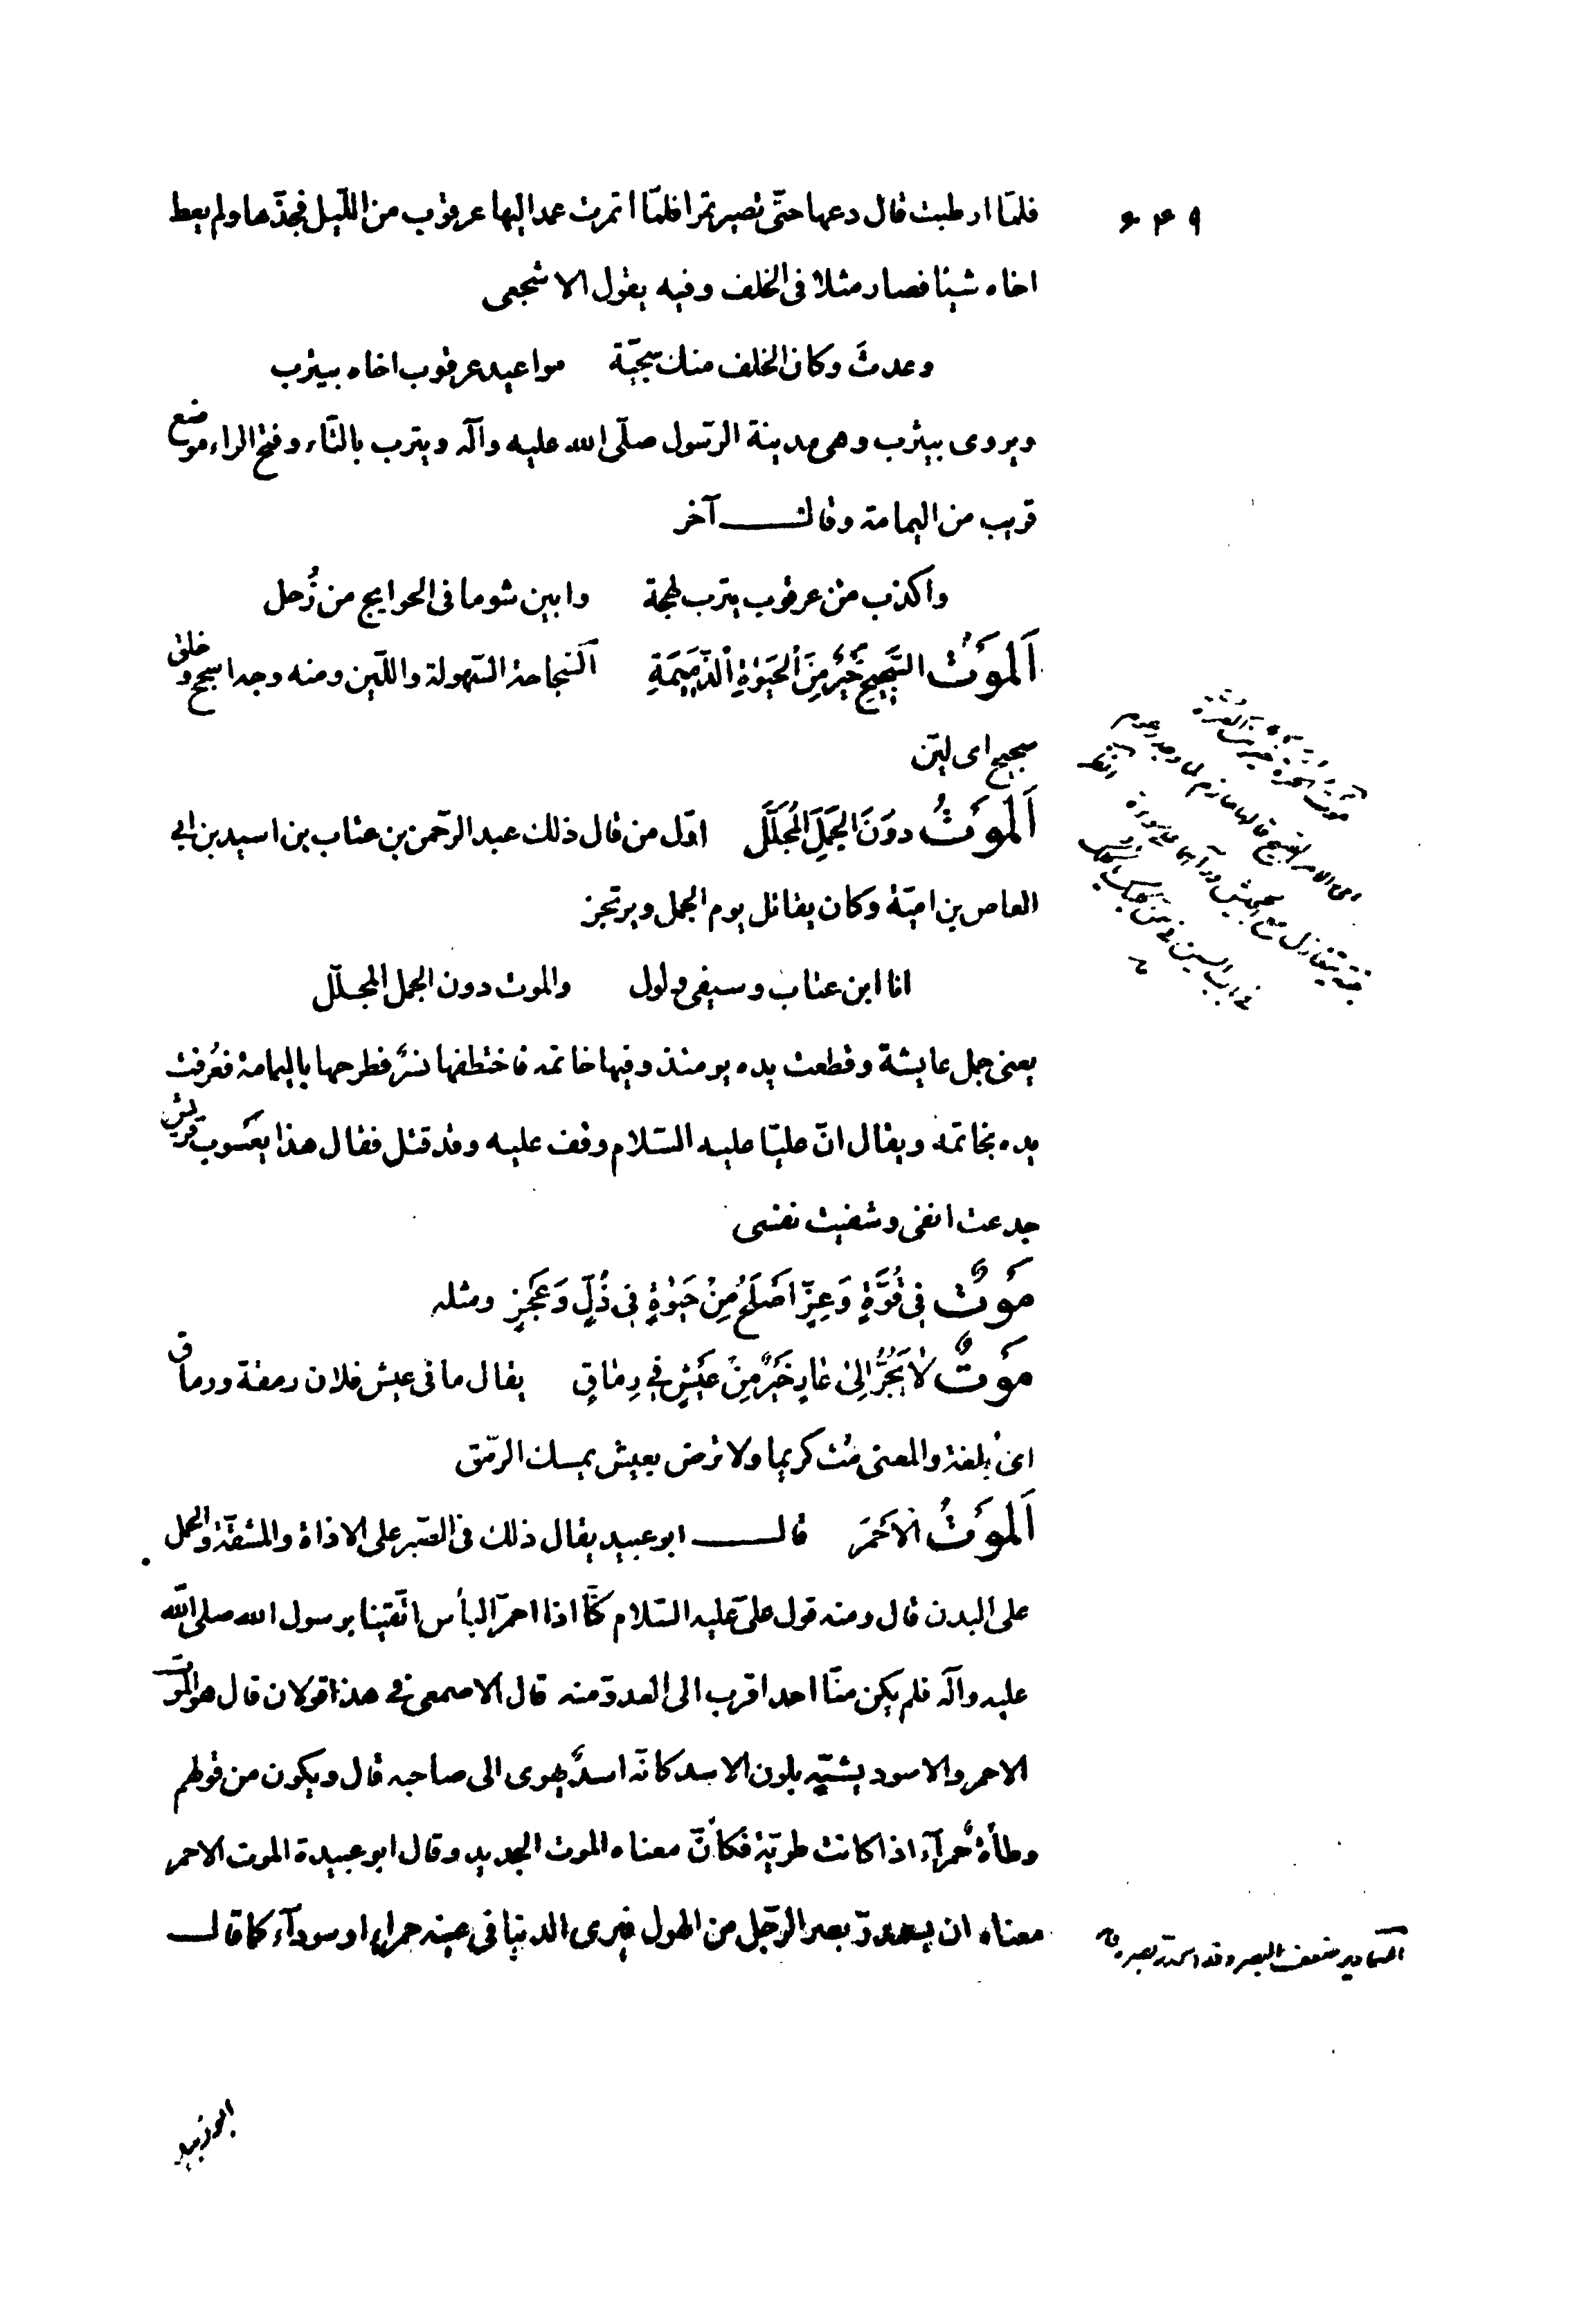 ۶۴۹
فلمّا ارطبت قال دعها حتّى تصير تمرا فلمّا اتمرت عمد اليها عرقوب من اللّيل فجذّها ولم يعط
اخاه شيئا فصار مثلا فى الخلف وفيه يقول الاشجعى
وعدتَ وكان الخلف منك سجيّة مواعيد عرقوب اخاه بيترب
ويروى بيثرب وهى مدينة الرّسول صلّى الله عليه وآله ويترب بالتّاء وفتح الراء موضع
قريب من اليمامة وقال آخر
واكذب من عرقوب يترب لهجة وابين شوما فى الحوايج من زُحل
اَلْمَوْتُ السَّجِيحُ خَيْرٌ مِنَ الْحَيٰوةِ الذَّمِيمَةِ السّجاحة السّهولة واللّين ومنه وجه اسجح وخلق
سجيح اى ليّن
اَلْمَوْتُ دوُنَ الْجَمَلِ الْمُجَلَّلِ اوّل من قال ذلك عبد الرّحمن بن عتاب بن اسيد بن ابى
العاص بن اميّة وكان يقاتل يوم الجمل ويرتجز
انا ابن عتاب وسيفى ولول والموت دون الجمل المجلّل
يعنى جمل عايشة وقطعت يده يومئذ وفيها خاتمه فاختطفها نسرٌ فطرحها باليمامة فعُرفت
يده بخاتمه ويقال انّ عليّا عليه السّلام وقف عليه وقد قتل فقال هذا يعسوب قريش
جدعت انفى وشفيت نفسى
مَوْتٌ فِى قُوَّةٍ وَعِزٍّ اَصْلَحُ مِنْ حَيٰوةٍ فِى ذُلٍّ وَعَجْزٍ ومثله
مَوْتٌ لاٰ يَجُرُّ اِلىٰ عٰارٍ خَيْرٌ مِنْ عَيْشٍ فِى رِمٰاقٍ يقال ما فى عيش فلان رمقة ورماق
اىْ بلغة والمعنى مُت كريما ولا ترض بعيش يمسك الرّمق
اَلْمَوْتُ الْاَحْمَرُ قال ابو عبيد يقال ذلك فى الصّبر على الاذاة والمشقّة والحمل
على البدن قال ومنه قول علىّ عليه السّلام كنّا اذا احمرّ البأس اتّقينا برسول الله صلى اللّه
عليه وآله فلم يكن منّا احد اقرب الى العدوّ منه قال الاصمعى فى هذا قولان قال هو الموت
الاحمر والاسود يشبّه بلون الاسد كانّه اسدٌ يهوى الى صاحبه قال ويكون من قولهم
وطأة حُمرآء اذا كانت طريّة فكأنّ معناه الموت الجديد وقال ابو عبيدة الموت الاحمر
معناه ان يسمدرّ بصر الرّجل من الهول فيرى الدنيا فى عينه حمراء او سودآء كما قال
السّمادير ضعف البصر وقد اسمدرّ بصره
ابو زبيد